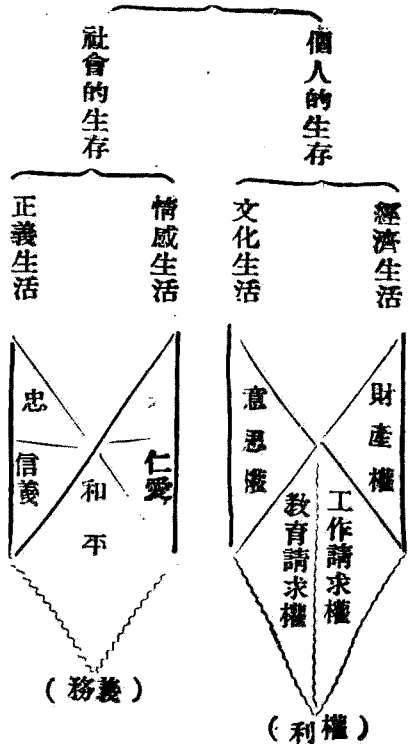 個人的生存
社會的生存
經濟生活
文化生活
情感生活
正義生活
財產權
意思權
工作請求權
教育請求權
仁愛
忠
信義
和平
（權利）
（義務）